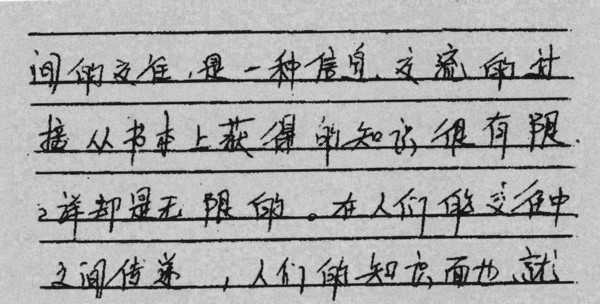 间的交往,是一种信息、交流的过
接从书本上获得的知识很有限.
之详却是无限的。在人们的交往中
之间传递,人们的知识面也就